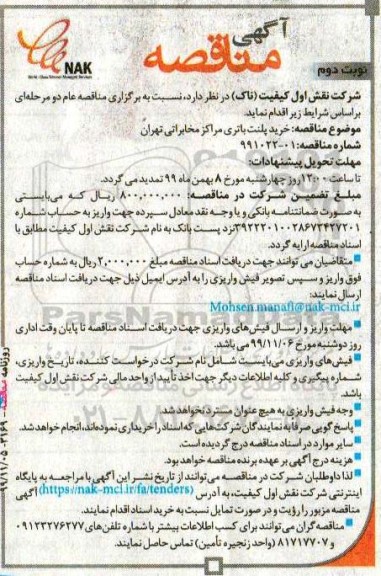 آگهی
مناقصه
NAK
World - Class Telecom Managed Services
نوبت دوم
شرکت نقش اول کیفیت (ناک) در نظر دارد، نسبت به برگزاری مناقصه عام دو مرحله‌ای
براساس شرایط زیر اقدام نماید.
موضوع مناقصه: خرید پلنت باتری مراکز مخابراتی تهران
شماره مناقصه: ۰۱-۹۹۱۰۲۲
مهلت تحویل پیشنهادات:
تا ساعت ۱۲:۰۰ روز چهارشنبه مورخ ۸ بهمن ماه ۹۹ تمدید می گردد.
مبلغ تضمین شرکت در مناقصه: ۸۰۰,۰۰۰,۰۰۰ ریال که می‌بایستی
به صورت ضمانتنامه بانکی و یا وجه نقد معادل سپرده جهت واریز به حساب شماره
۳۹۲۲۲۰۱۰۰۲۸۶۷۲۴۷۲۰۱ نزد پست بانک به نام شرکت نقش اول کیفیت مطابق با
اسناد مناقصه ارایه گردد.
متقاضیان می توانند جهت دریافت اسناد مناقصه مبلغ ۲,۰۰۰,۰۰۰ ریال به شماره حساب
فوق واریز و سپس تصویر فیش واریزی را به آدرس ایمیل ذیل جهت دریافت اسناد مناقصه
ارسال نمایند:
Mohsen.manafi@nak-mci.ir
مهلت واریز و ارسال فیش‌های واریزی جهت دریافت اسناد مناقصه تا پایان وقت اداری
روز دوشنبه مورخ ۹۹/۱۱/۰۶ می باشد.
فیش‌های واریزی می‌بایست شامل نام شرکت درخواست کننده، تاریخ واریزی،
شماره پیگیری و کلیه اطلاعات دیگر جهت اخذ تأیید از واحد مالی شرکت نقش اول کیفیت
باشد.
وجه فیش واریزی به هیچ عنوان مسترد نخواهد شد.
پاسخ گویی صرفا به نمایندگان شرکت‌هایی که اسناد را خریداری نموده‌اند، انجام خواهد شد.
سایر موارد در اسناد مناقصه درج گردیده است.
هزینه درج آگهی بر عهده برنده مناقصه خواهد بود.
لذا داوطلبان شرکت در مناقصه می‌توانند از تاریخ نشر این آگهی با مراجعه به پایگاه
اینترنتی شرکت نقش اول کیفیت، به آدرس (https://nak-mci.ir/fa/tenders) آگهی
مناقصه مزبور را رؤیت و در صورت تمایل نسبت به خرید اسناد اقدام نمایند.
مناقصه گران می‌توانند برای کسب اطلاعات بیشتر با شماره تلفن‌های ۰۹۱۲۳۲۷۶۲۷۷
و ۸۱۷۱۷۷۰۷ (واحد زنجیره تأمین) تماس حاصل نمایند.
روزنامه
۹۹/۱۱/۰۵ - ۳۱۶۹